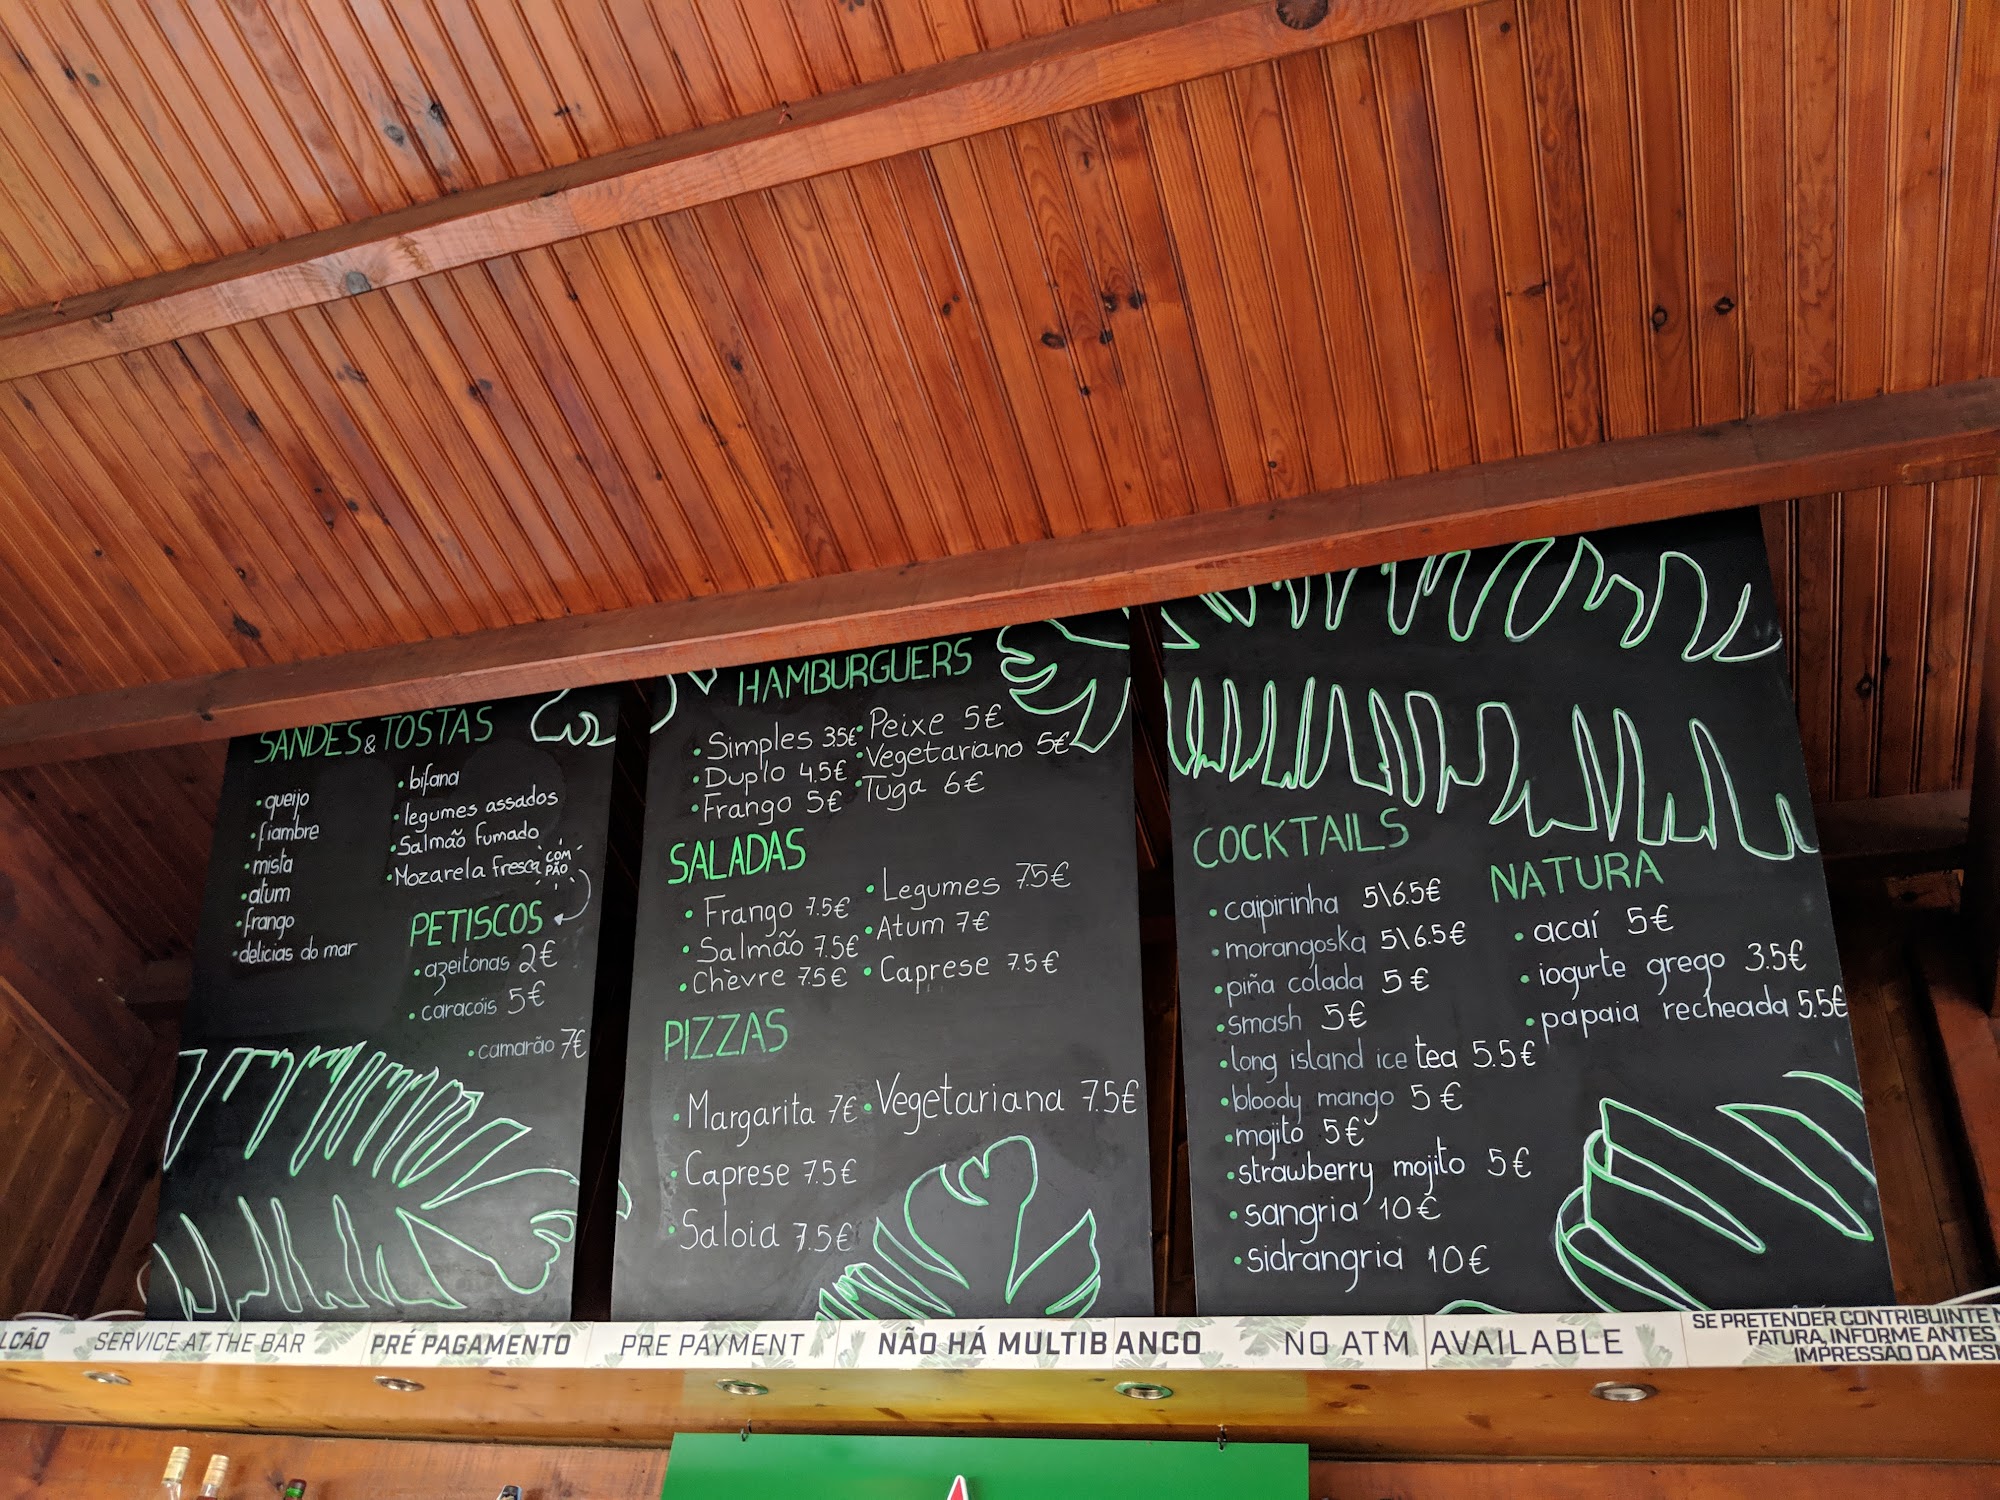 SANDES & TOSTAS
• queijo
• fiambre
• mista
• atum
• frango
• delicias do mar
• bifana
• legumes assados
• Salmão fumado
• Mozarela fresca
COM PÃO
PETISCOS
• azeitonas 2€
• caracóis 5€
• camarão 7€
HAMBURGUERS
• Simples 3.5€
• Duplo 4.5€
• Frango 5€
• Peixe 5€
• Vegetariano 5€
• Tuga 6€
SALADAS
• Frango 7.5€
• Salmão 7.5€
• Chèvre 7.5€
• Legumes 7.5€
• Atum 7€
• Caprese 7.5€
PIZZAS
• Margarita 7€
• Caprese 7.5€
• Saloia 7.5€
• Vegetariana 7.5€
COCKTAILS
• caipirinha 5\6.5€
• morangoska 5\6.5€
• piña colada 5€
• smash 5€
• long island ice tea 5.5€
• bloody mango 5€
• mojito 5€
• strawberry mojito 5€
• sangria 10€
• sidrangria 10€
NATURA
• acaí 5€
• iogurte grego 3.5€
• papaia recheada 5.5€
LCÃO SERVICE AT THE BAR PRÉ PAGAMENTO PRE PAYMENT NÃO HÁ MULTIBANCO NO ATM AVAILABLE
SE PRETENDER CONTRIBUINTE N
FATURA, INFORME ANTES
IMPRESSÃO DA MESM